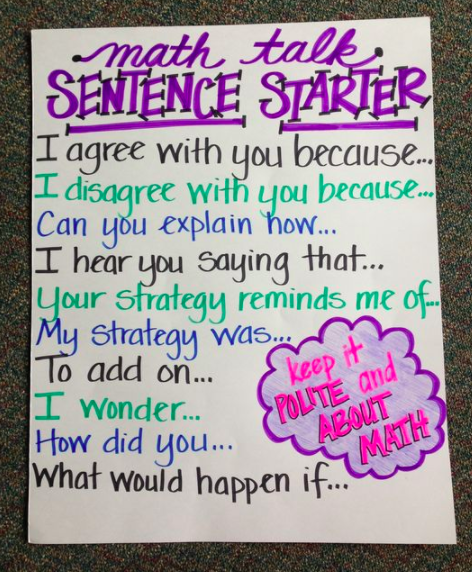 math talk
SENTENCE STARTER
I agree with you because...
I disagree with you because...
Can you explain how...
I hear you saying that...
Your strategy reminds me of...
My strategy was...
To add on...
I wonder...
How did you...
What would happen if...
keep it
POLITE and
ABOUT
MATH